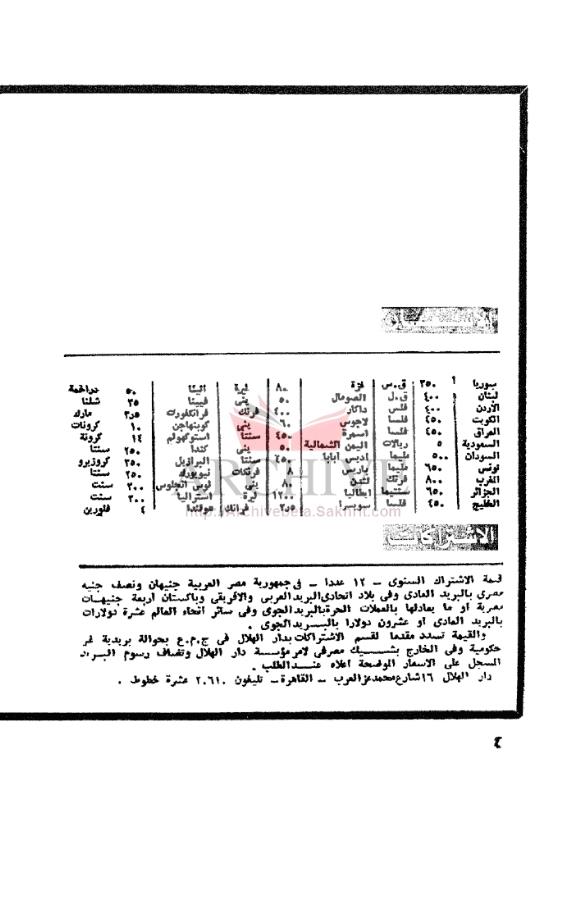 الأســعــار
سوريا ٢٥٠ ق.س غزة ٨٠ ليرة اثينا ٥٠ دراخمة
لبنان ٤٠٠ ق.ل الصومال ٥٠ بنى فيينا ٣٥ شلنا
الأردن ٤٠٠ فلس داكار ٤٠٠ فرنك فرانكفورت ٣٫٥ مارك
الكويت ٤٥٠ فلسا لاجوس ٦٠ بنى كوبنهاجن ١٠ كرونات
العراق ٤٥٠ فلسا اسمرة ٤٥٠ سنتا استوكهولم ١٤ كرونة
السعودية ٥ ريالات اليمن الشمالية ٥٠ بنى كندا ٢٥٠ سنتا
السودان ٥٠٠ مليما اديس ابابا ٤٥٠ سنتا البرازيل ٣٥٠ كروزيرو
تونس ٦٥٠ مليما باريس ٨ فرنكات نيويورك ٢٥٠ سنتا
المغرب ٨٠٠ فرنك لندن ٨٠ بنى لوس انجلوس ٣٠٠ سنت
الجزائر ٦٥٠ سنتيما ايطاليا ١٢٠٠ ليرة استراليا ٣٠٠ سنت
الخليج ٤٥٠ فلسا سويسرا ٣٫٥ فرانك هولندا ٤ فلورين
ARCHIVE
http://Archivebeta.Sakhrit.com
الاشتراكات
قيمة الاشتراك السنوى – ١٢ عددا – فى جمهورية مصر العربية جنيهان ونصف جنيه
مصرى بالبريد العادى وفى بلاد اتحادى البريد العربى والافريقى وباكستان اربعة جنيهـات
مصرية أو ما يعادلها بالعملات الحرة بالبريد الجوى وفى سائر أنحاء العالم عشرة دولارات
بالبريد العادى او عشرون دولارا بالبـــريد الجوى .
والقيمة تسدد مقدما لقسم الاشتراكات بدار الهلال فى ج.م.ع بحوالة بريدية غير
حكومية وفى الخارج بشـــيك مصرفى لامر مؤسسة دار الهلال وتضاف رسوم البـريد
المسجل على الاسعار الموضحة اعلاه عنـــد الطلب .
دار الهلال ١٦ شارع محمد عز العرب – القاهرة – تليفون ٢٠٦١٠ عشرة خطوط .
٤